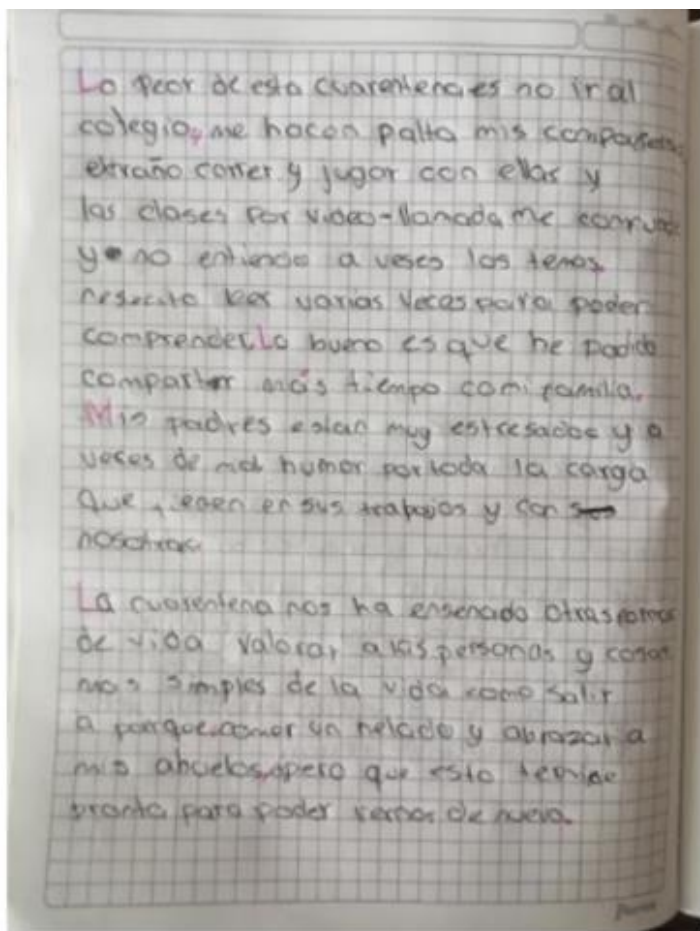 Lo peor de esta cuarentena, es no ir al
colegio, me hacen palta mis compañeras
extraño correr y jugar con ellas y
las clases por video-llamada me
y no entiendo a veses los temas,
nesecito leer varias veces para poder
comprender. Lo bueno es que he podido
compartir más tiempo co mi familia.
Mis padres estan muy estresados y a
veces de mal humor por toda la carga
que tienen en sus trabajos y con
nosotras.
La cuarentena nos ha ensenado otras formas
de vida valorar a las personas y cosas
mas simples de la vida como salir
a parque, comer un helado y abrazar a
mis abuelos, espero que esto termine
pronto para poder vernos de nuevo.